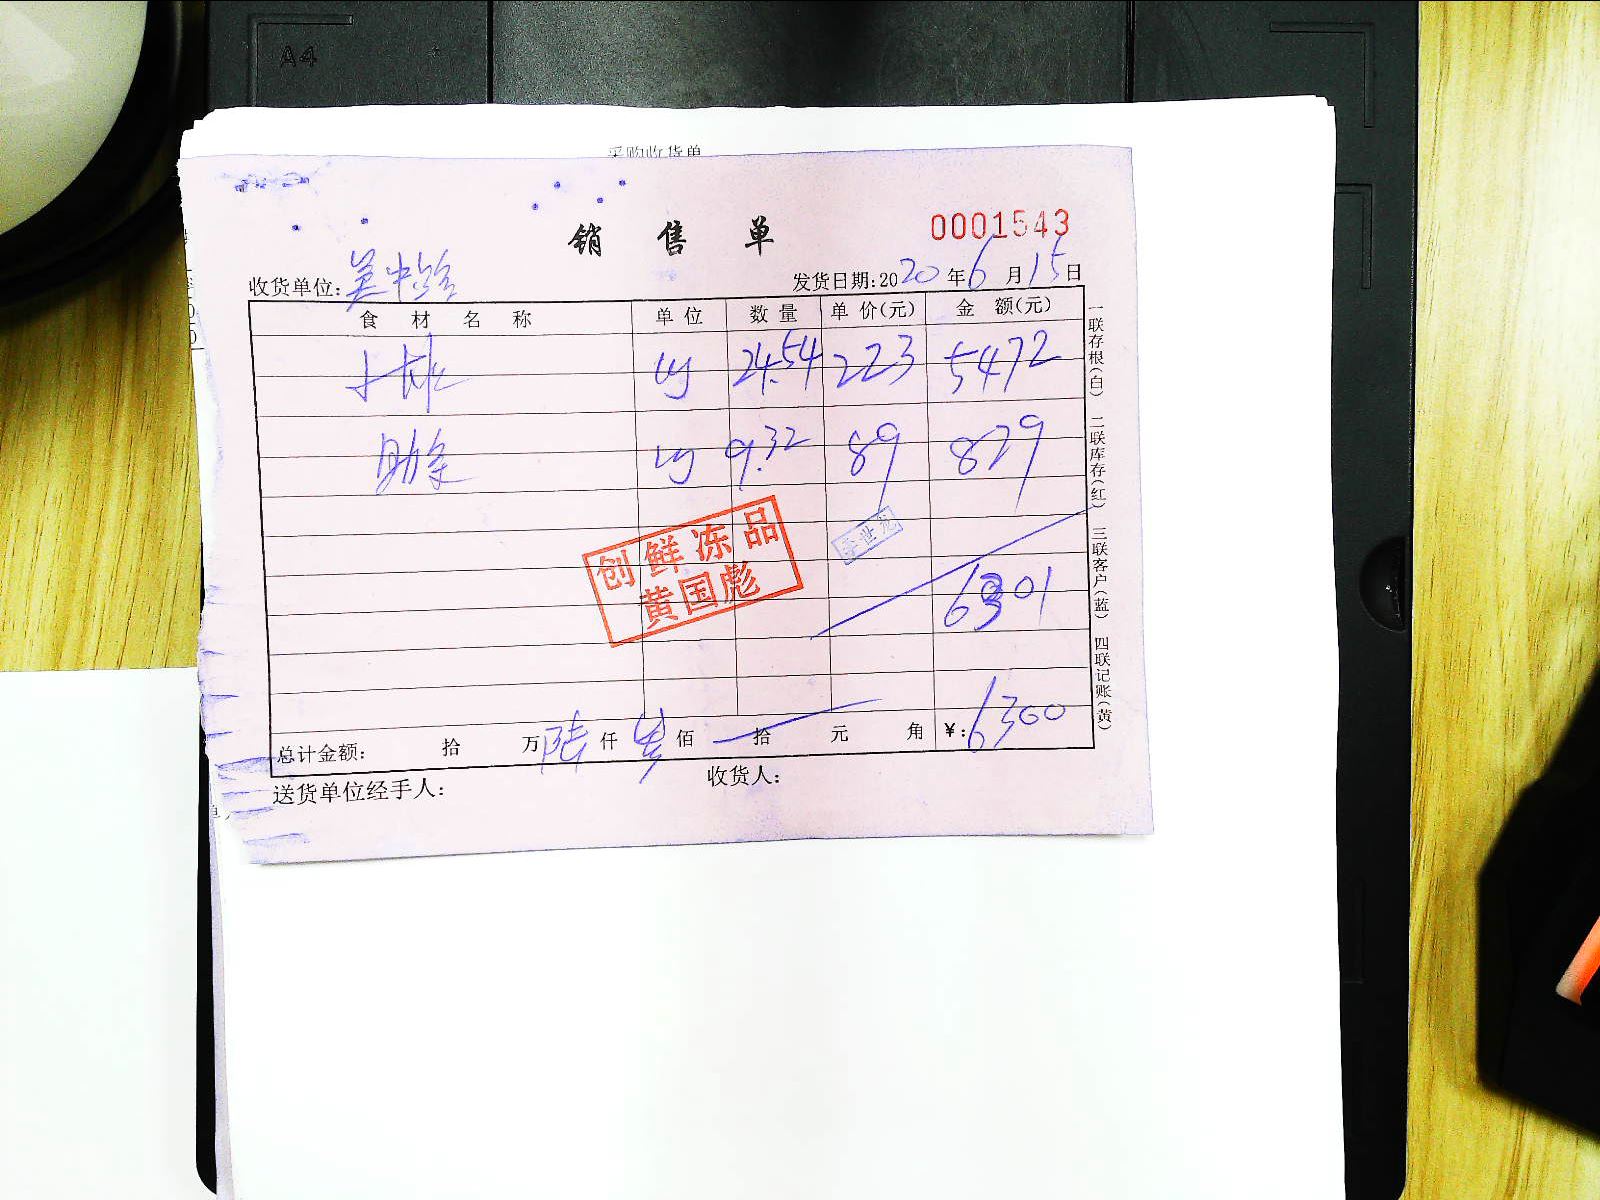 A4
采购收货单
销售单
0001543
收货单位:
发货日期:2020年6月15日
食材名称 单位 数量 单价(元) 金额(元)
kg 24.54 223 5472
肋条 kg 9.32 89 829
创鲜冻品
黄国彪
6301
总计金额: 拾 万 陆 仟 叁 佰 拾 元 角 ¥:6300
送货单位经手人:
收货人:
一联存根(白) 二联库存(红) 三联客户(蓝) 四联记账(黄)